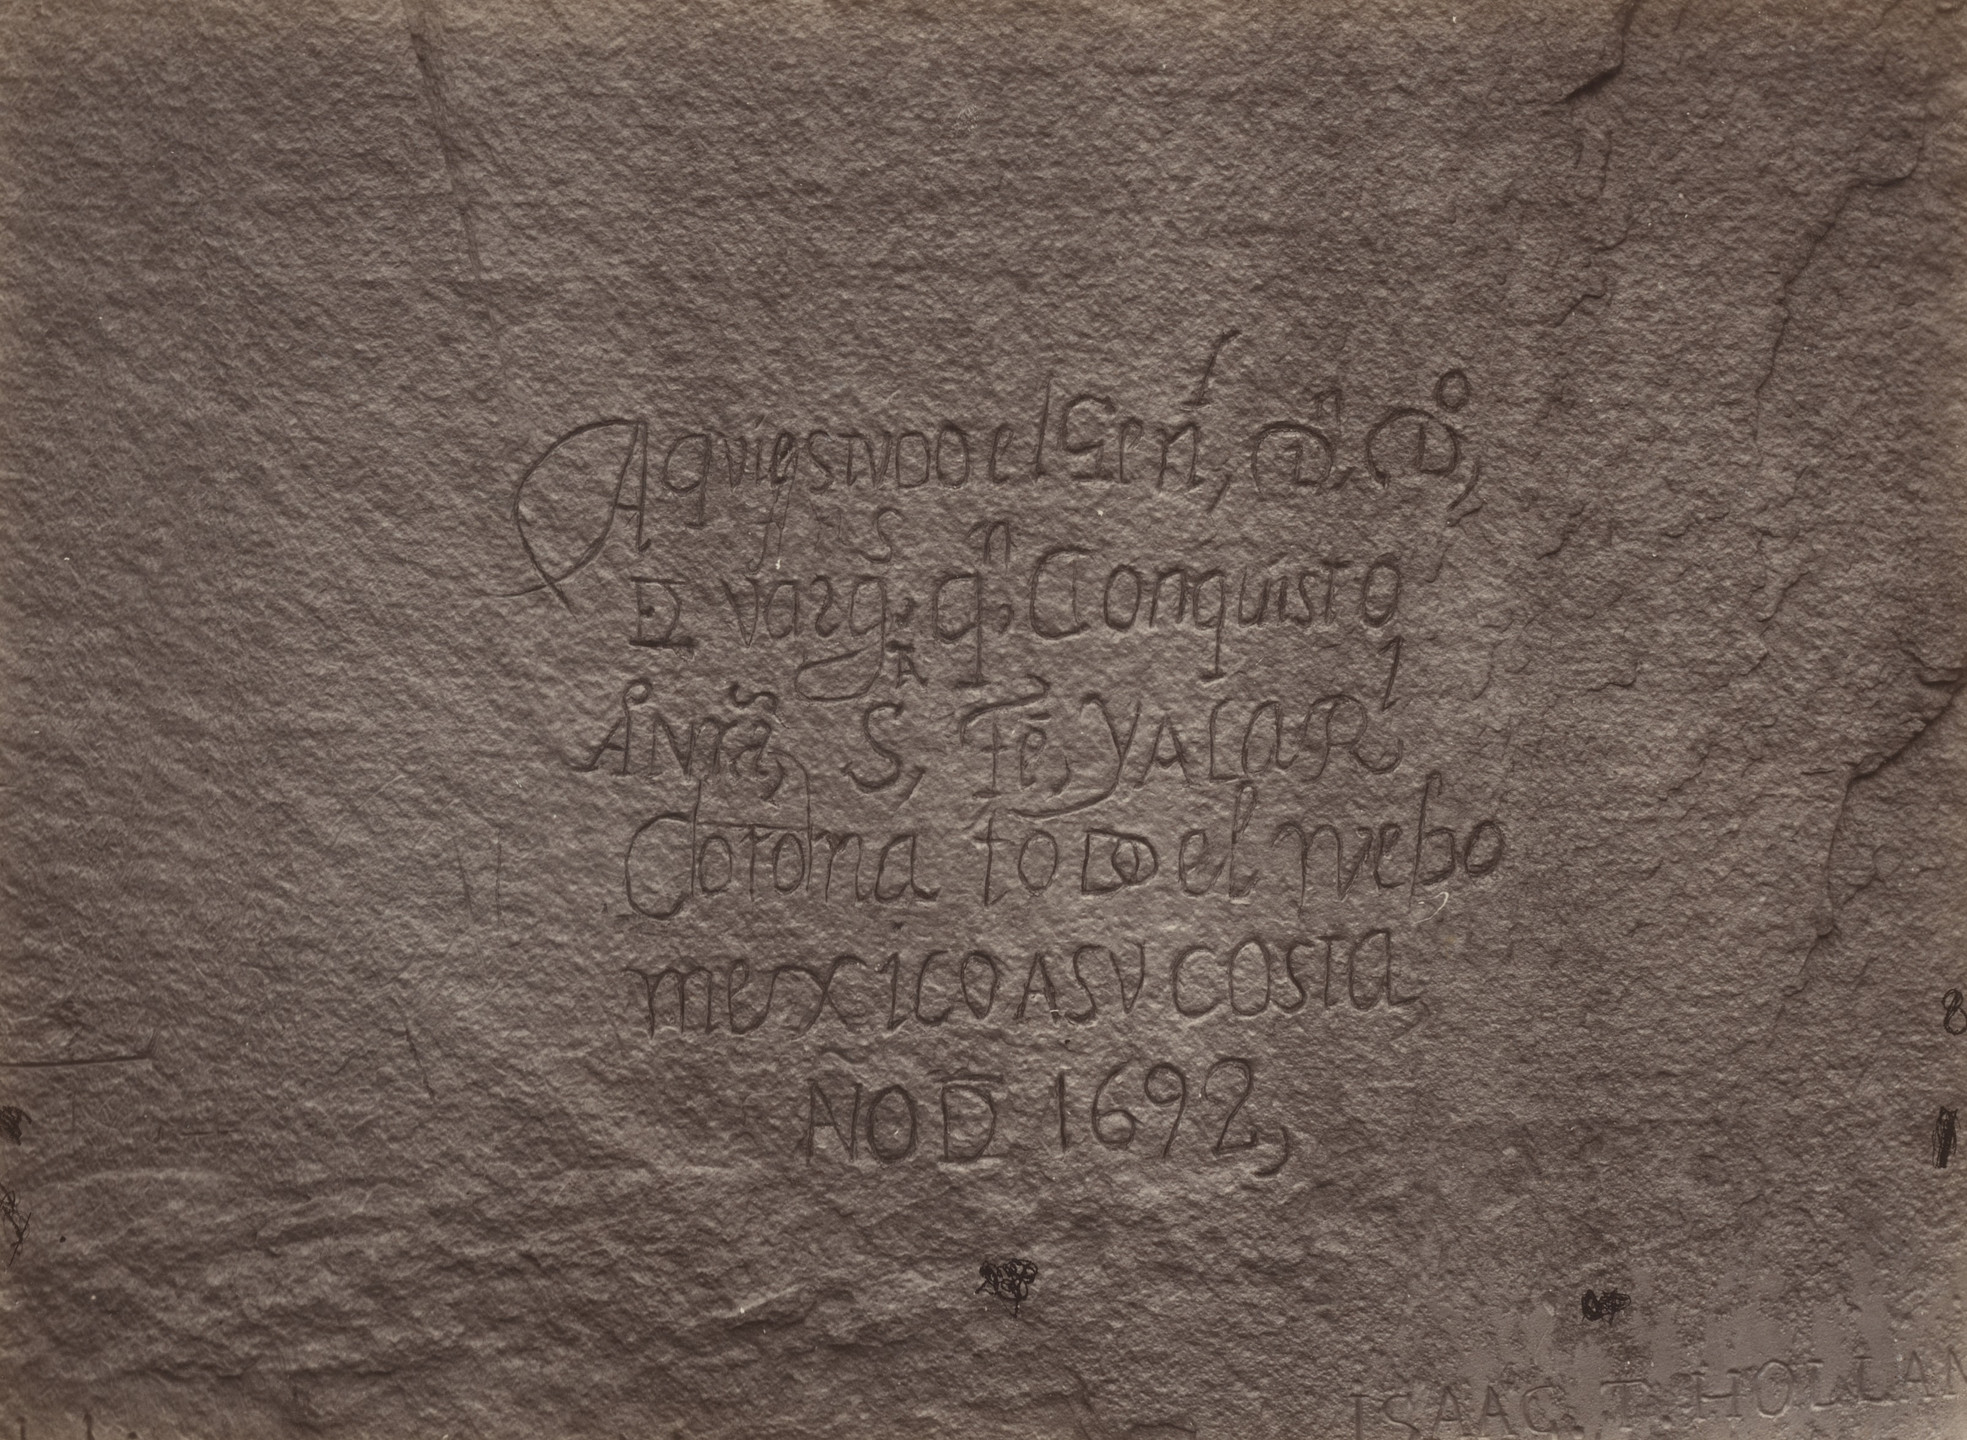 Aqui estVDo el Genl, Dn Do,
DE Vargs, qn Conquisto
Â Nrã, Sta, Fê, Y A LA Rl
Corona toDo el nuebo
mexico A SV COSTA,
Año DE 1692,
ISAAC T. HOLLAN